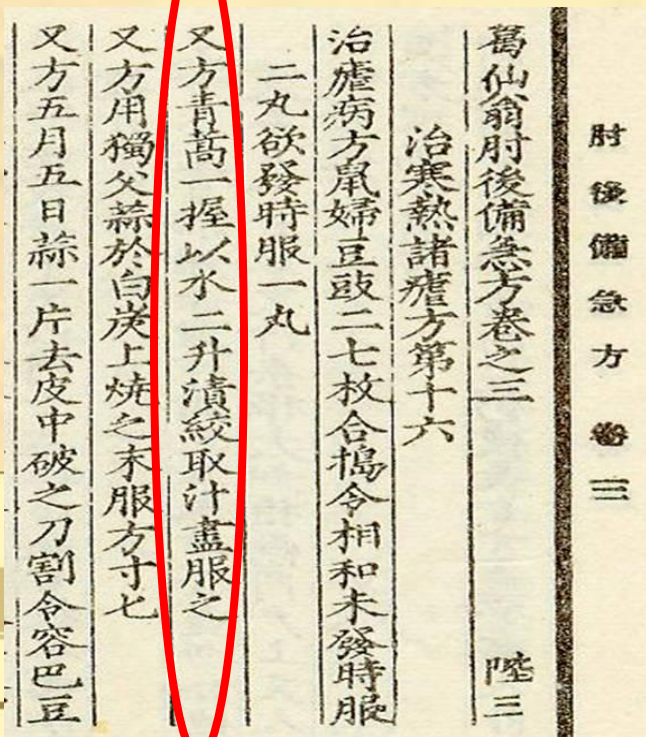 肘後備急方 卷三
葛仙翁肘後備急方卷之三 陞三
治寒熱諸瘧方第十六
治瘧病方鼠婦豆豉二七枚合搗令相和未發時服
二丸欲發時服一丸
又方青蒿一握以水二升漬絞取汁盡服之
又方用獨父蒜於白炭上燒之末服方寸匕
又方五月五日蒜一片去皮中破之刀割令容巴豆